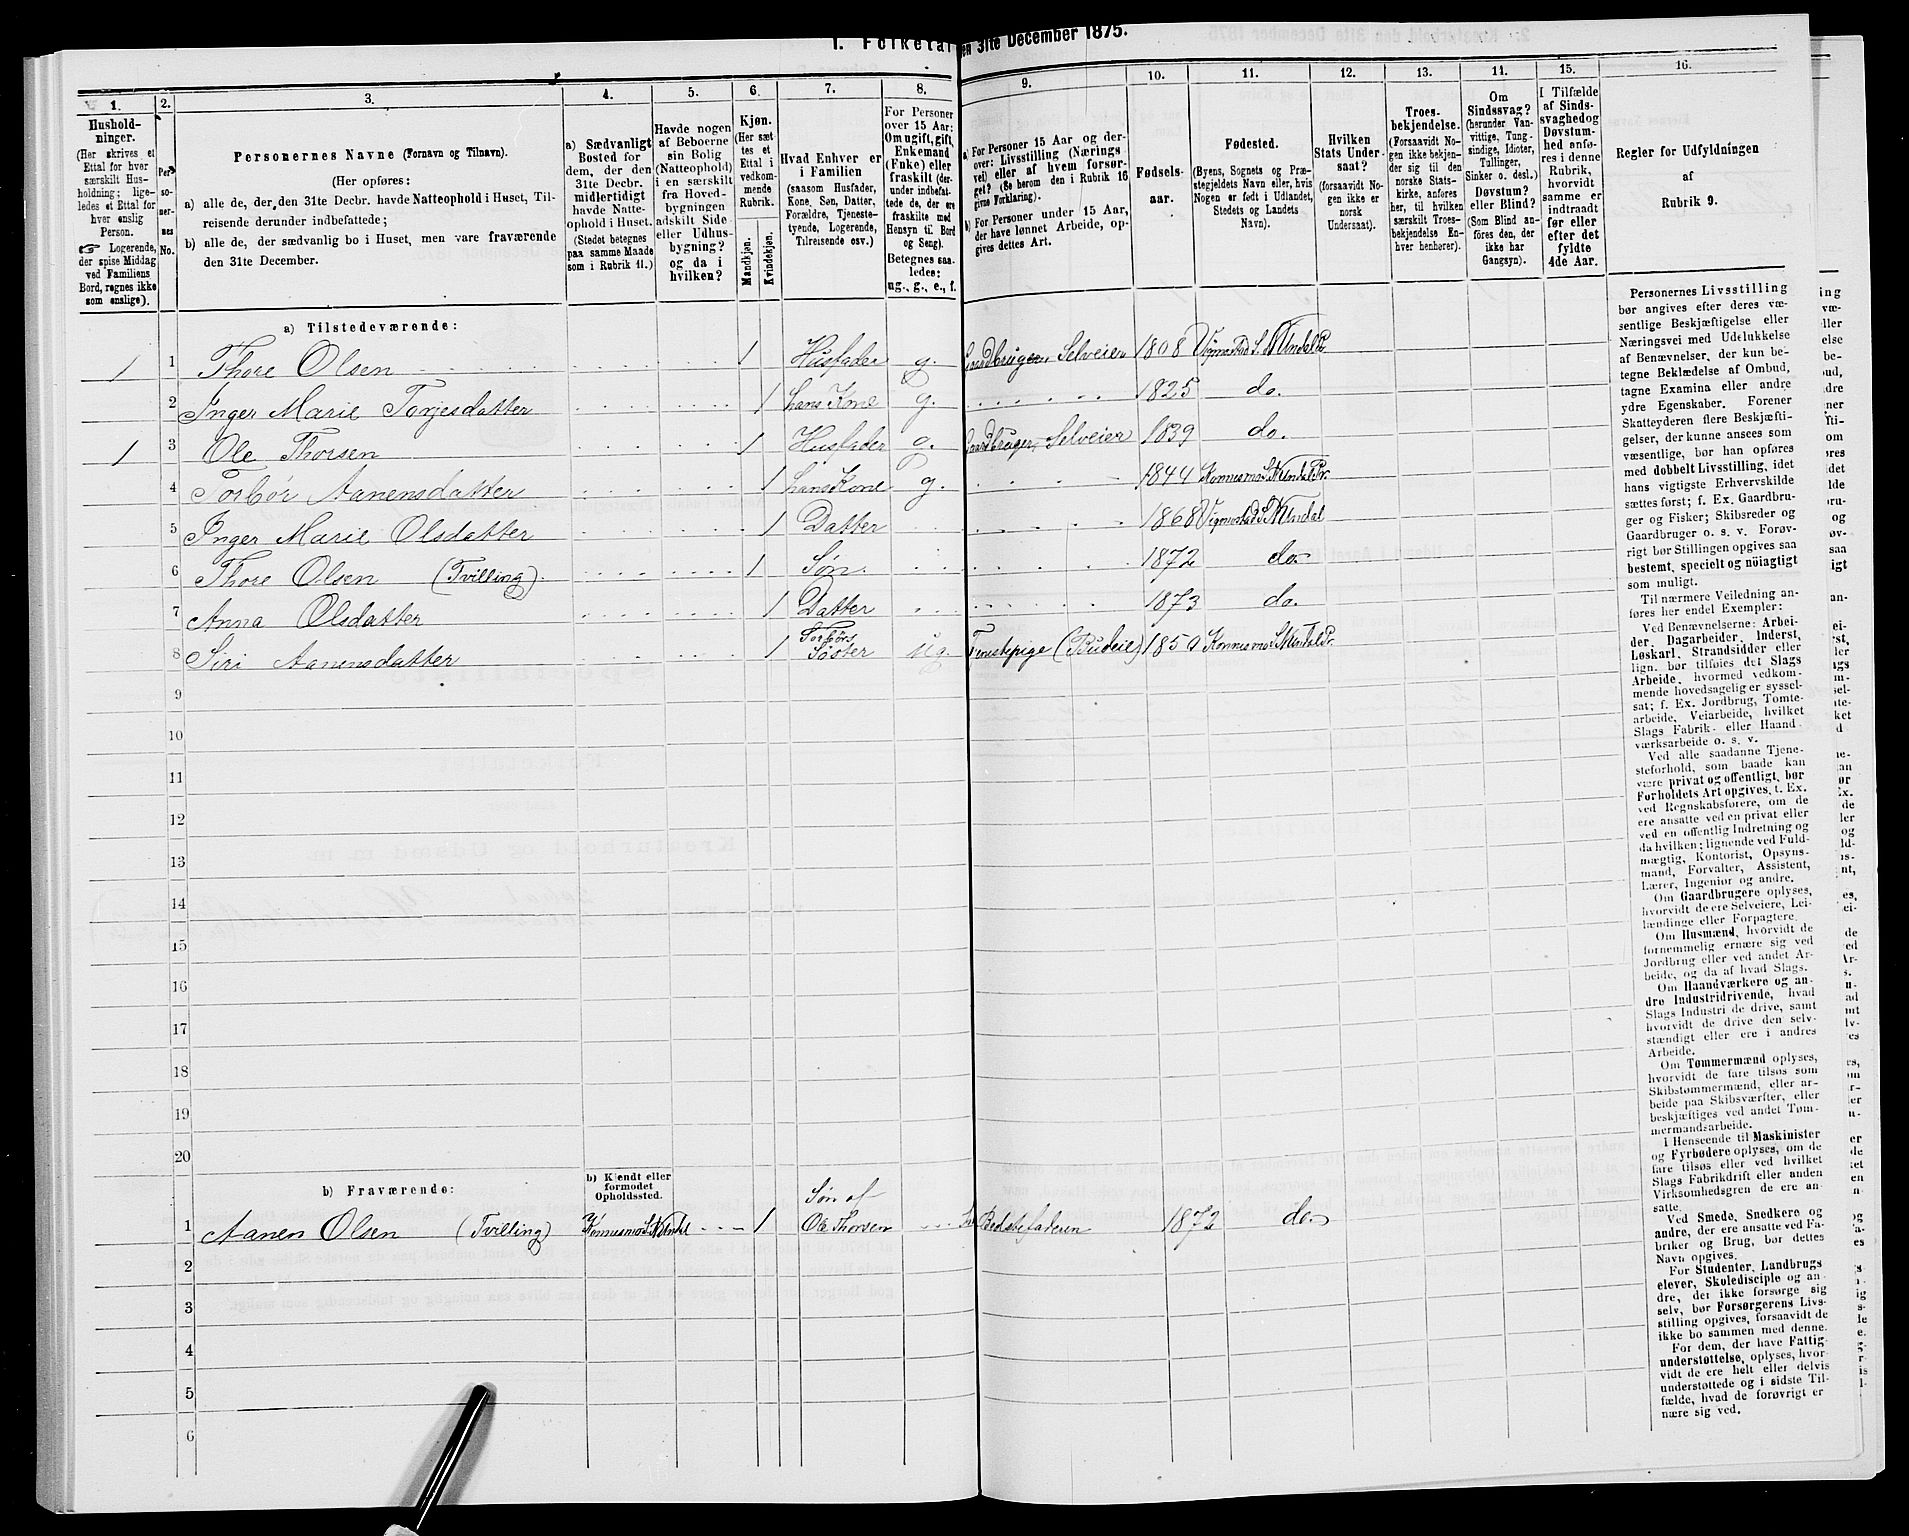 1. Folketal den 31te December 1875.
1. 2. 3. 4. 5. 6. 7. 8. 9. 10. 11. 12. 13. 14. 15. 16.
Hushold-
ninger.
(Her skrives et
Ettal for hver
særskilt Hus-
holdning; lige-
ledes et Ettal for
hver enslig
Person.
☞ Logerende,
der spise Middag
ved Familiens
Bord, regnes ikke
som enslige).
Per-
so-
ner-
nes
No.
Personernes Navne (Fornavn og Tilnavn).
(Her opføres:
a) alle de, der den 31te Decbr. havde Natteophold i Huset, Til-
reisende derunder indbefattede;
b) alle de, der sædvanlig bo i Huset, men vare fraværende
den 31te December.
a) Sædvanligt
Bosted for
dem, der den
31te Decbr.
midlertidigt
havde Natte-
ophold i Huset.
(Stedet betegnes
paa samme Maade
som i Rubrik 11.)
Havde nogen
af Beboerne
sin Bolig
(Natteophold)
i en særskilt
fra Hoved-
bygningen
adskilt Side-
eller Udhus-
bygning?
og da i
hvilken?
Kjøn.
(Her sæt-
tes et
Ettal i
vedkom-
mende
Rubrik.
Mandkjøn.
Kvindekjøn.
Hvad Enhver er
i Familien
(saasom Husfader,
Kone, Søn, Datter,
Forældre, Tjeneste-
tyende, Logerende,
Tilreisende osv.)
For Personer
over 15 Aar:
Om ugift, gift,
Enkemand
(Enke) eller
fraskilt (der-
under indbefat-
tede de, der ere
fraskilte med
Hensyn til Bord
og Seng).
Betegnes saa-
ledes:
ug., g., e., f.
a) For Personer 15 Aar og der-
over: Livsstilling (Nærings-
vei) eller af hvem forsør-
get? (Se herom den i Rubrik 16
givne Forklaring).
b) For Personer under 15 Aar,
der have lønnet Arbeide, op-
gives dettes Art.
Fødsels-
aar.
Fødested.
(Byens, Sognets og Præ-
stegjeldets Navn eller, hvis
Nogen er født i Udlandet,
Stedets og Landets
Navn).
Hvilken
Stats Under-
saat?
(forsaavidt No-
gen ikke er
norsk
Undersaat).
Troes-
bekjendelse.
(Forsaavidt No-
gen ikke bekjen-
der sig til den
norske Stats-
kirke, anføres
her, til hvilket
særskilt Troes-
bekjendelse
Enhver henhører).
Om
Sindssvag?
(herunder Van-
vittige, Tung-
sindige, Idioter,
Tullinger,
Sinker o. desl.)
Døvstum?
eller Blind?
(Som Blind an-
føres den, der
ikke har
Gangsyn).
I Tilfælde
af Sinds-
svaghed og
Døvstum-
hed anfø-
res i denne
Rubrik,
hvorvidt
samme er
indtraadt
før eller
efter det
fyldte
4de Aar.
Regler for Udfyldningen
af
Rubrik 9.
a) Tilstedeværende:
1 1 Thore Olsen 1 Husfader g. Gaardbruger, Selveier 1808 Vigmostad S. N. Undal Pr.
2 Inger Marie Torjesdatter 1 hans Kone g. 1825 do.
1 3 Ole Thorsen 1 Husfader g. Gaardbruger, Selveier 1839 do.
4 Torbør Aanensdatter 1 hans Kone g. 1844 Konnesmo S. N. Undal Pr.
5 Inger Marie Olsdatter 1 Datter 1868 Vigmostad S. N. Undal
6 Thore Olsen (Tvilling) 1 Søn 1872 do.
7 Anna Olsdatter 1 Datter 1873 do.
8 Siri Aanensdatter 1 Torbørs Søster ug. Tjenestepige (Budeie) 1850 Konnesmo S. N. Undal Pr.
9
10
11
12
13
14
15
16
17
18
19
20
b) Fraværende:
b) Kjendt eller
formodet
Opholdssted.
1 Aanen Olsen (Tvilling) Konnesmo S. N. Undal 1 Søn af Ole Thorsen Bedstefaderen 1872 do.
2
3
4
5
6
Personernes Livsstilling
bør angives efter deres væ-
sentlige Beskjæftigelse eller
Næringsvei med Udelukkelse
af Benævnelser, der kun be-
tegne Beklædelse af Ombud,
tagne Examina eller andre
ydre Egenskaber. Forener
Skatteyderen flere Beskjæfti-
gelser, der kunne ansees som
væsentlige, bør han opføres
med dobbelt Livsstilling, idet
hans vigtigste Erhvervskilde
sættes først; f. Ex. Gaardbru-
ger og Fisker; Skibsreder og
Gaardbruger o. s. v. Forøv-
rigt bør Stillingen opgives saa
bestemt, specielt og nöiagtigt
som muligt.
Til nærmere Veiledning an-
føres her endel Exempler:
Ved Benævnelserne: Arbei-
der, Dagarbeider, Inderst,
Løskarl, Strandsidder eller
lign. bør tilføies det Slags
Arbeide, hvormed vedkom-
mende hovedsagelig er syssel-
sat; f. Ex. Jordbrug, Tomte-
arbeide, Veiarbeide, hvilket
Slags Fabrik- eller Haand-
værksarbeide o. s. v.
Ved alle saadanne Tjene-
steforhold, som baade kan
være privat og offentligt, bør
Forholdets Art opgives, t. Ex.
ved Regnskabsførere, om de
ere ansatte ved en privat eller
ved en offentlig Indretning og
da hvilken; lignende ved Fuld-
mægtig, Kontorist, Opsyns-
mand, Forvalter, Assistent,
Lærer, Ingeniør og andre.
Om Gaardbrugere oplyses,
hvorvidt de ere Selveiere, Lei-
lændinge eller Forpagtere.
Om Husmænd, hvorvidt de
fornemmelig ernære sig ved
Jordbrug eller ved andet Ar-
beide, og da af hvad Slags.
Om Haandværkere og an-
dre Industridrivende, hvad
Slags Industri de drive, samt
hvorvidt de drive den selv-
stændigt eller ere i andres
Arbeide.
Om Tømmermænd oplyses,
hvorvidt de fare tilsøs som
Skibstømmermænd, eller ar-
beide paa Skibsværfter, eller
beskjæftiges ved andet Tøm-
mermandsarbeide.
I Henseende til Maskinister
og Fyrbødere oplyses, om de
fare tilsøs eller ved hvilket
Slags Fabrikdrift eller anden
Virksomhedsgren de ere an-
satte.
Ved Smede, Snedkere og
andre, der ere ansatte ved Fa-
briker og Brug, bør dettes
Navn opgives.
For Studenter, Landbrugs
elever, Skoledisciple og an-
dre, der ikke forsørge sig
selv, bør Forsørgerens Livs-
stilling opgives, forsaavidt de
ikke bo sammen med denne.
For dem, der have Fattig-
understøttelse, oplyses, hvor-
vidt de ere helt eller delvis
understøttede og i sidste Til-
fælde, hvad de forøvrigt er
nære sig ved.